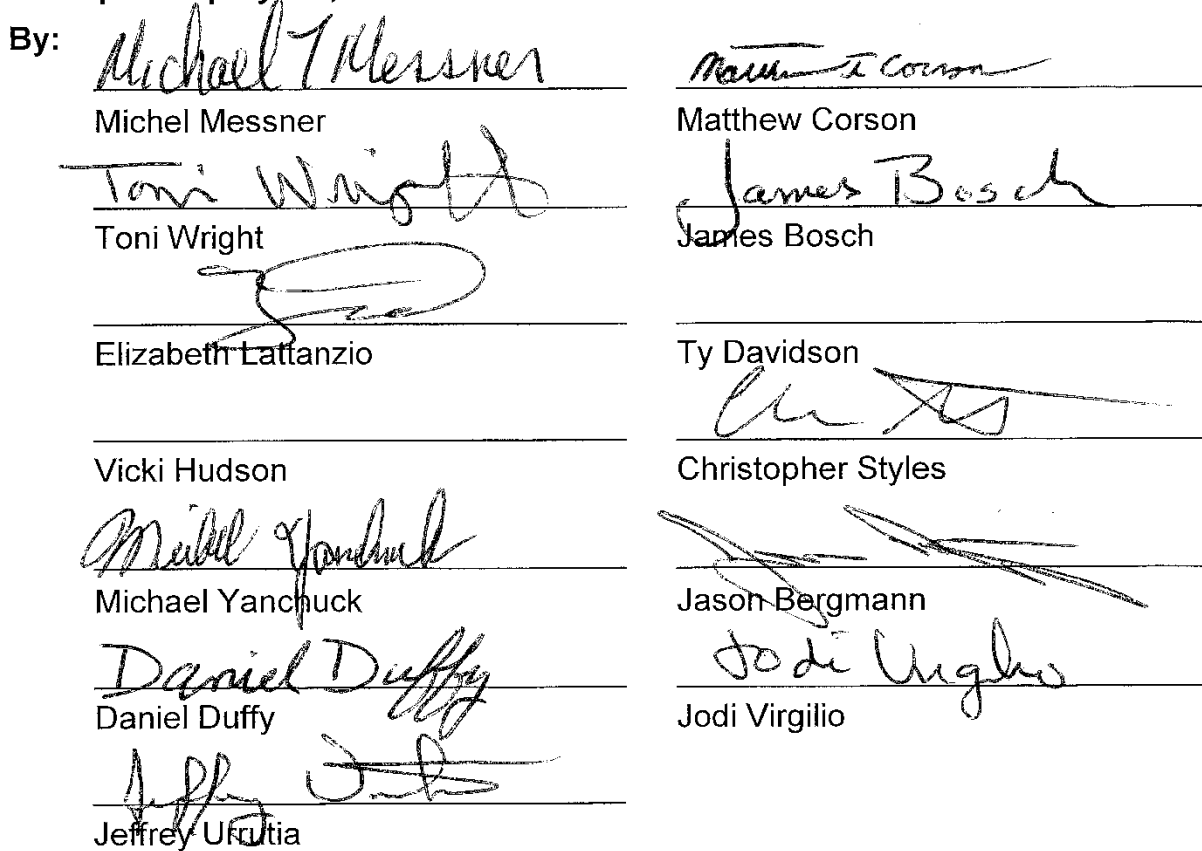 By:
Michael T Messner
Michel Messner
Toni Wright
Toni Wright
Elizabeth Lattanzio
Vicki Hudson
Michael Yanchuck
Michael Yanchuck
Daniel Duffy
Daniel Duffy
Jeffrey
Jeffrey Urrutia
Matthew Corson
Matthew Corson
James Bosch
James Bosch
Ty Davidson
Christopher Styles
Jason Bergmann
Jodi Virgilio
Jodi Virgilio